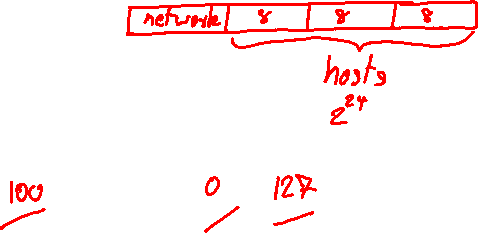 network 8 8 8
hosts
2^24
100 0 127